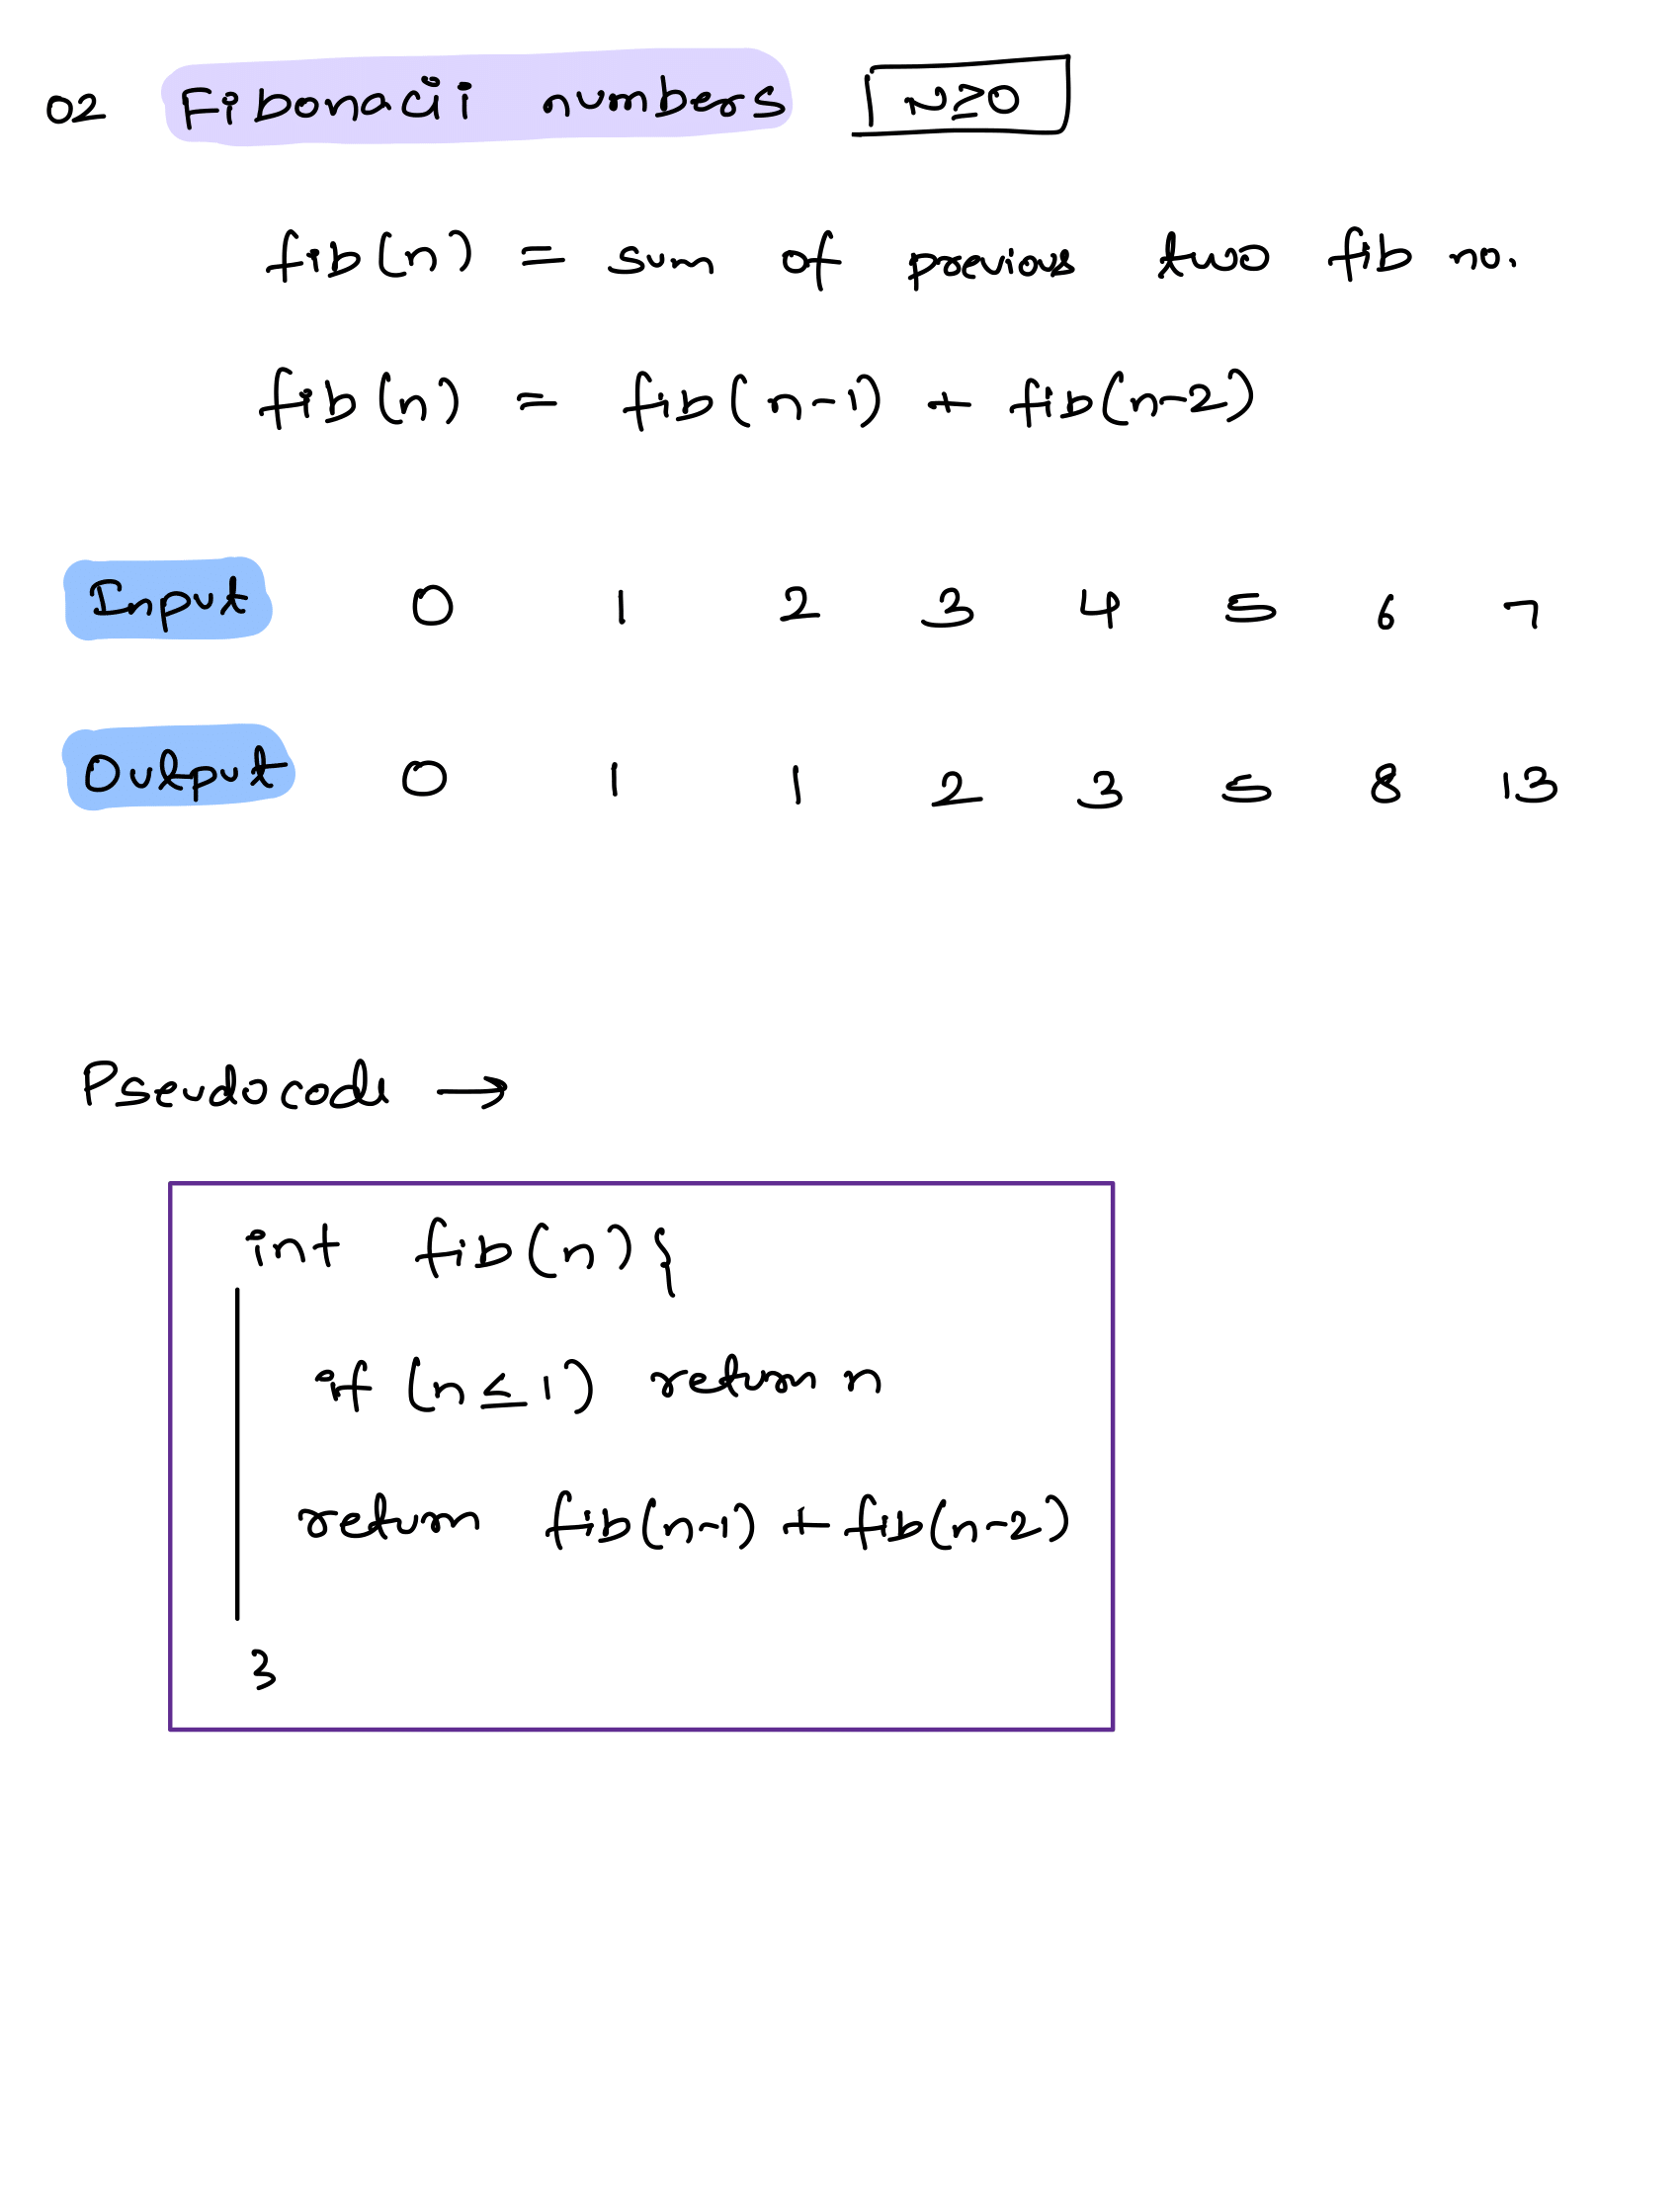 02 Fibonacii numbers n≥0
fib(n) = sum of previous two fib no.
fib(n) = fib(n-1) + fib(n-2)
Input 0 1 2 3 4 5 6 7
Output 0 1 1 2 3 5 8 13
Pseudocode →
int fib(n){
if (n≤1) return n
return fib(n-1) + fib(n-2)
}